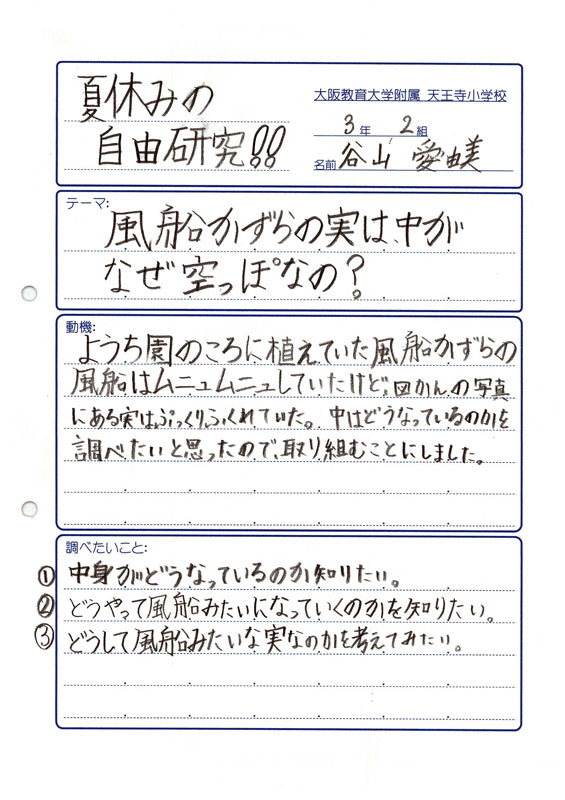 夏休みの
自由研究!!
大阪教育大学附属 天王寺小学校
3年 2組
名前 谷山 愛由美
テーマ:
風船かずらの実は、中が
なぜ空っぽなの?
動機:
ようち園のころに植えていた風船かずらの
風船はムニュムニュしていたけど、図かんの写真
にある実はぷっくりふくれていた。中はどうなっているのかを
調べたいと思ったので、取り組むことにしました。
調べたいこと:
① 中身がどうなっているのか知りたい。
② どうやって風船みたいになっていくのかを知りたい。
③ どうして風船みたいな実なのかを考えてみたい。